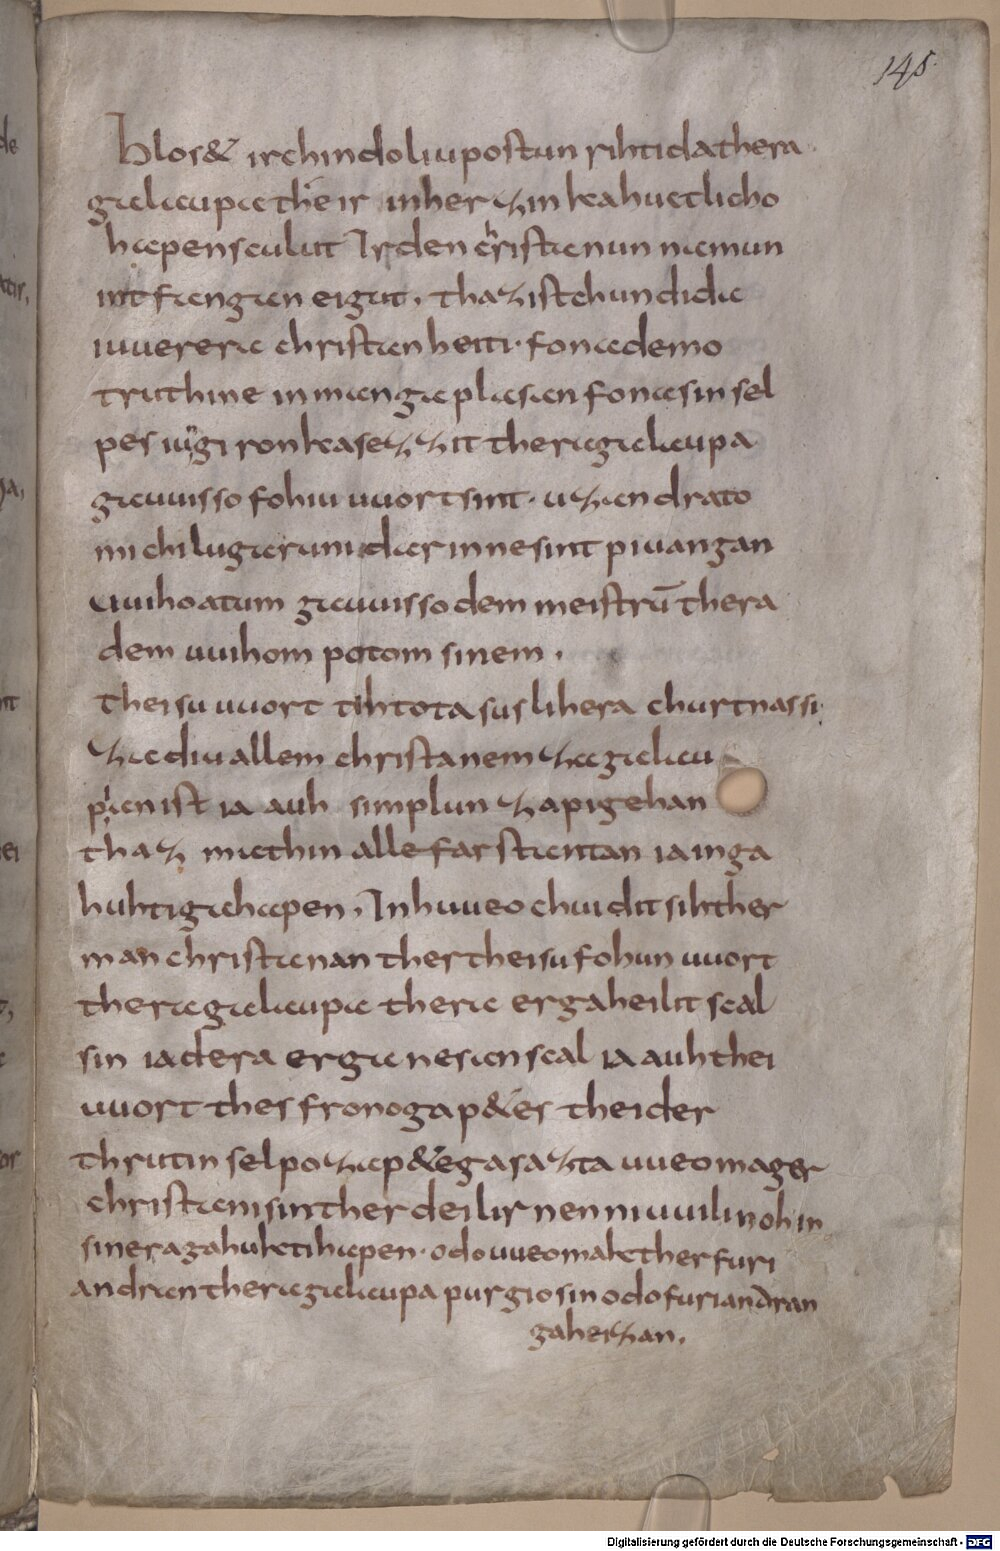 Hlos& ir chindo liupostun rihtida thera
galaupa the ir in herzin kahuctlicho
hapen sculut Ir den christanun namun
intfangan eigut. thaz ist chundida
iuuerera christanheiti. fona demo
truthine in man gaplasan fona sin sel
pes iungiron kasezzit thera galaupa
gauuisso fohiu uuort sint. uzan drato
michilu garuni dar inne sint piuangan
uuiho atum gauuisso dem meistrū thera
dem uuihom potom sinem.
theisu uuort tihtota suslihera churtnassi.
za diu allem christanem za galau
pian ist ia auh simplun za pigehan
thaz mathin alle farstantan ia in ga
huhti gahapen. In huueo chuidit sih ther
man christanan ther theisu fohun uuort
thera galaupa thera er gaheilit scal
sin ia dera er ganesan scal ia auh thei
uuort thes fronogap&es thei der
thrutin selpo za p&e gasazta uueo mager
christani sin ther dei lirnen ni uuili noh in
sinera gahukti hapen. odo uueo mak ther furi
andran thera galaupa purgio sin odo furi andran
gaheizan.
145.
Digitalisierung gefördert durch die Deutsche Forschungsgemeinschaft - DFG